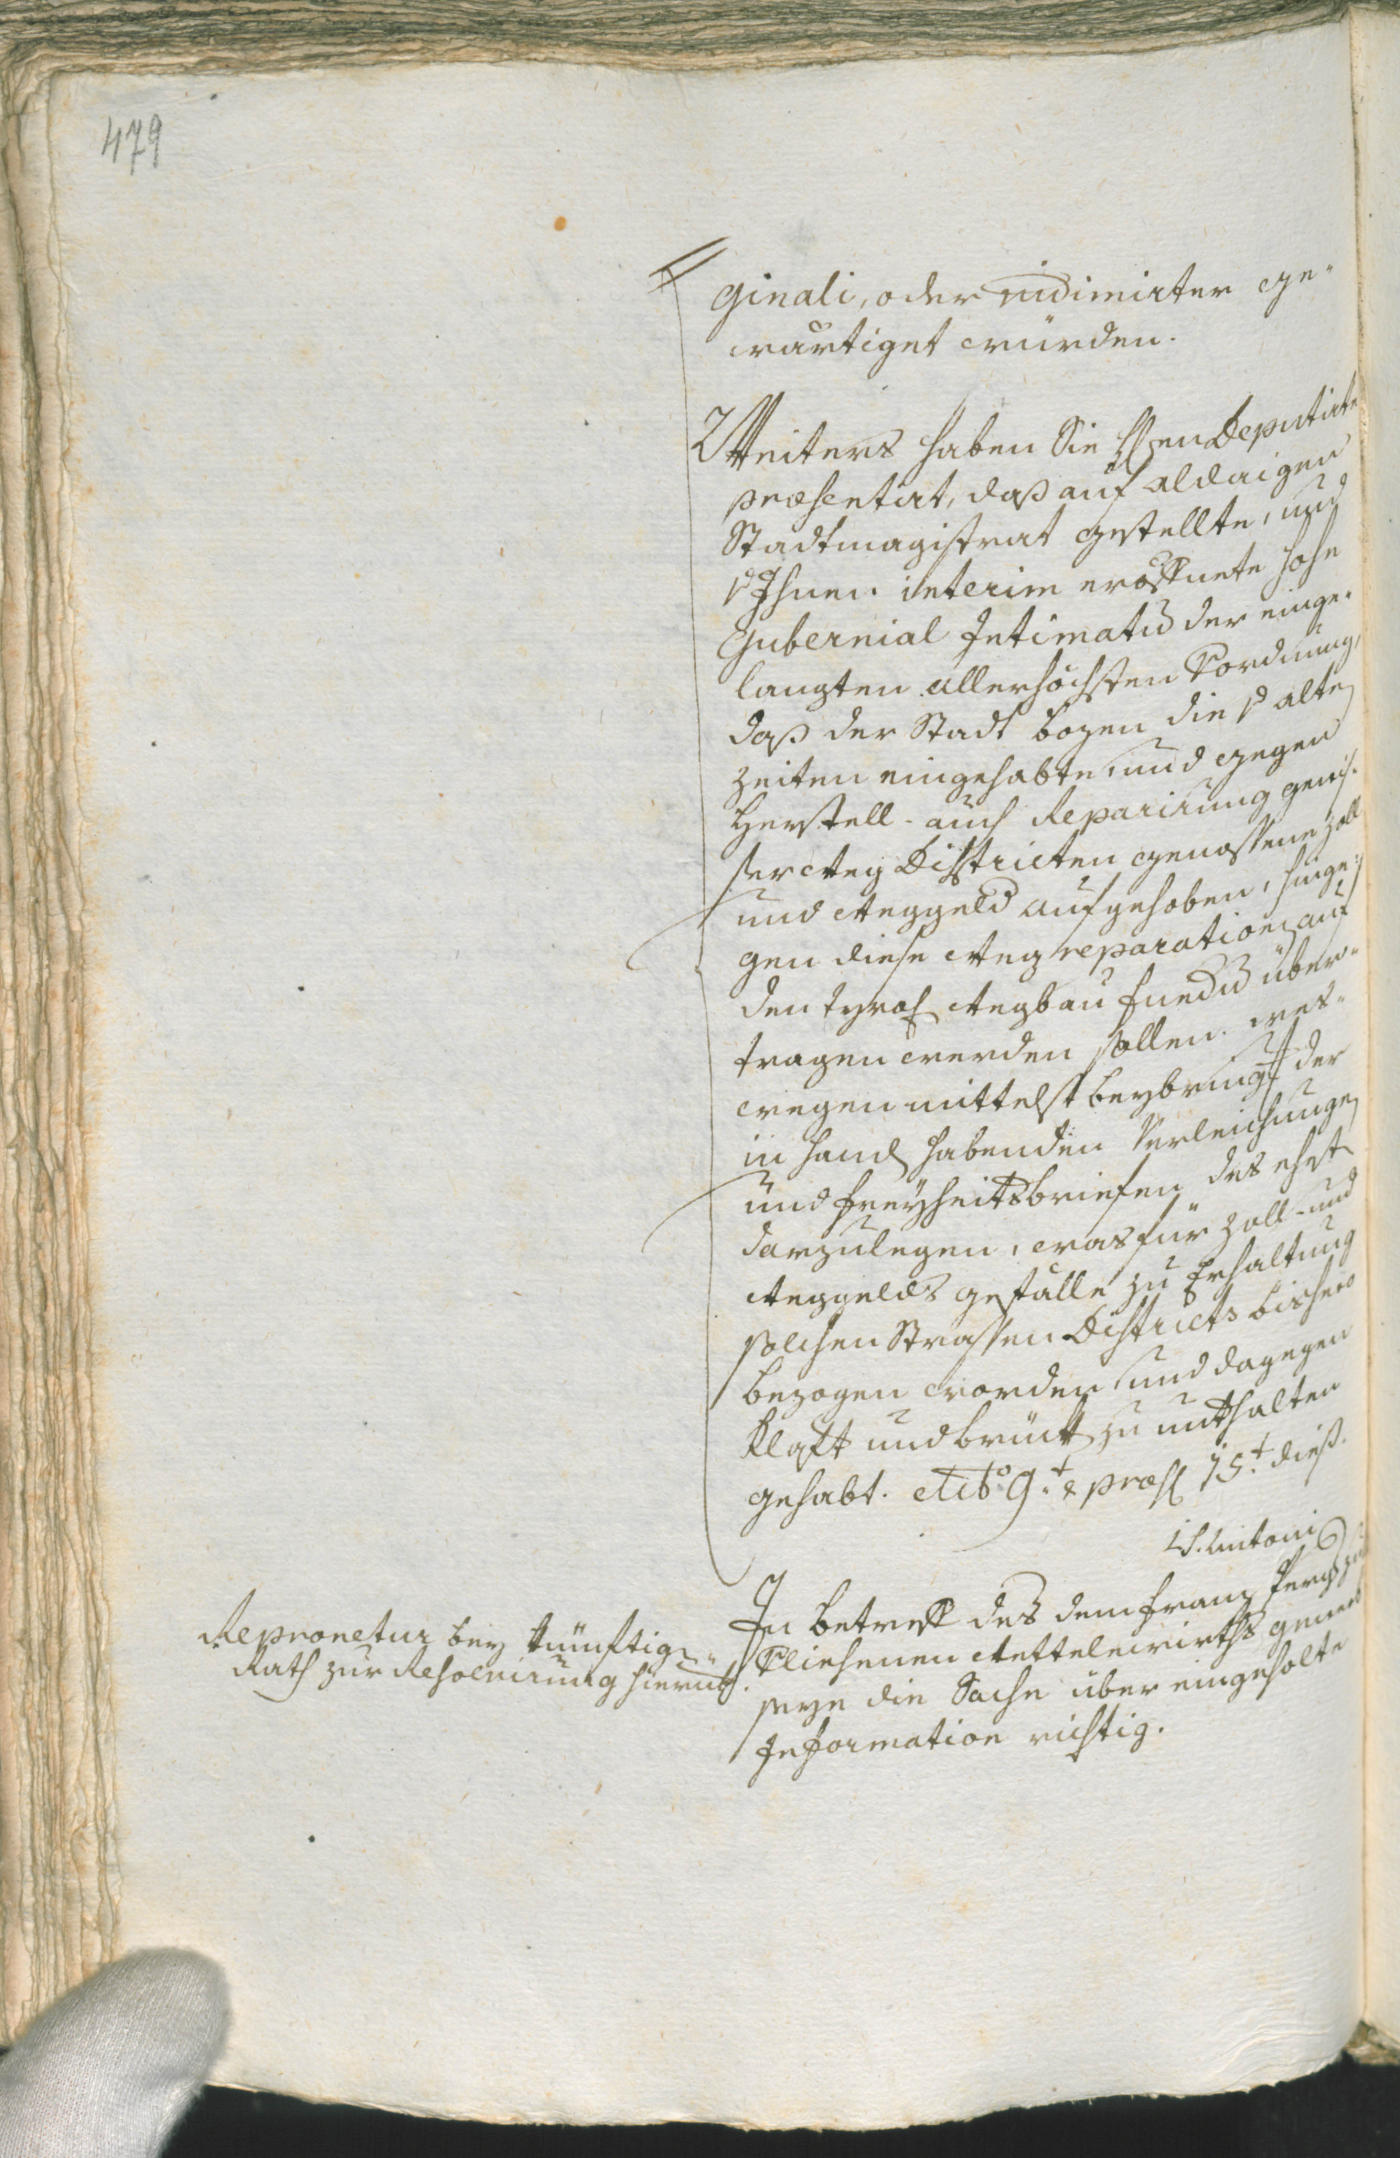 479
ginali, oder vidimirter ge„
wärtiget würden.
Weiters haben Sie Hhen Deputirte
præsentirt, daß auf aldaigen
Stadtmagistrat gestellte, und
Ihnen interim eröffnete hohe
Gubernial Intimatũ der einge„
langten allerhöchsten Vordnung,
daß der Stadt Bozen die alten
Zeiten eingehabte, und gegen
Herstell- auch Reparirung gewis„
ser Weg Districten genossene Zoll
und Weggeld aufgehoben, hinge„
gen diese Weg reparationen auf
den tyrol. Wegbau fundũ über„
tragen werden sollen. wes„
wegen mittelst beybringung der
in handen habenden Verleichungen
und freyheitsbriefen des ehest
darzulegen, was für Zoll- und
Weggelds gefälle zu Erhaltung
solchen Strassen Districts bishero
bezogen worden und dagegen
Pflaster und bruken zu untthalten
gehabt. 9.t & præs. 15.t diess.
S. Antoni
Repronetur bey künftigen
Rath zur Resolvirung hierüb.
In betreff des dem franz
verliehenen Mettelewirths gewerb
seye die Sache über eingeholte
Information richtig.